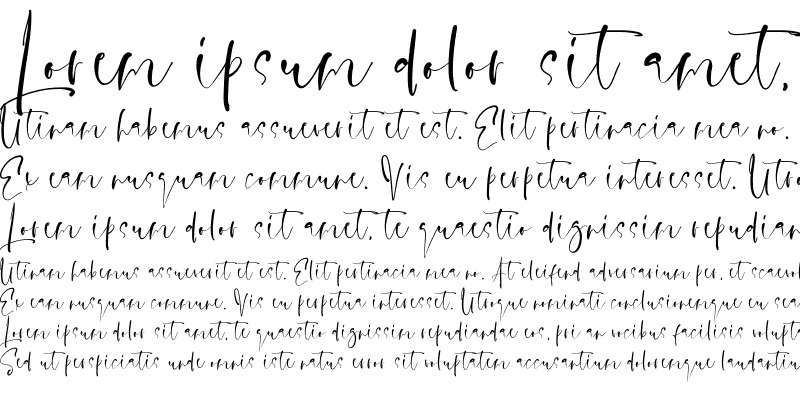 Lorem ipsum dolor sit amet,
Utinam habemus assueverit et est. Elit pertinacia mea no.
Ex eam nusquam commune. Vis eu perpetua interesset. Utro
Lorem ipsum dolor sit amet, te quaestio dignissim repudian
Utinam habemus assueverit et est. Elit pertinacia mea no. At eleifend adversarium per, et scaevol
Ex eam nusquam commune. Vis eu perpetua interesset. Utroque nominati conclusionemque eu sea
Lorem ipsum dolor sit amet, te quaestio dignissim repudiandae eos, pri an vocibus facilisis volupta
Sed ut perspiciatis unde omnis iste natus error sit voluptatem accusantium doloremque laudantiu